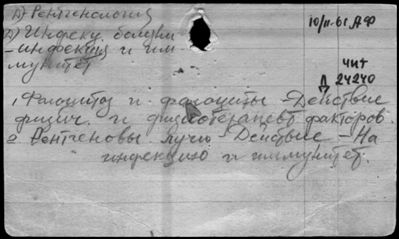 1) Рентгенология
2) Инфекц. болезни
- инфекция и им-
мунитет
10/II-61 АФ
ЧИТ
Д 24240
1. Фагоцитоз и фагоциты - Действие
физич. и физиотерапевт факторов.
2 Рентгеновы лучи - Действие - На
инфекцию и иммунитет.